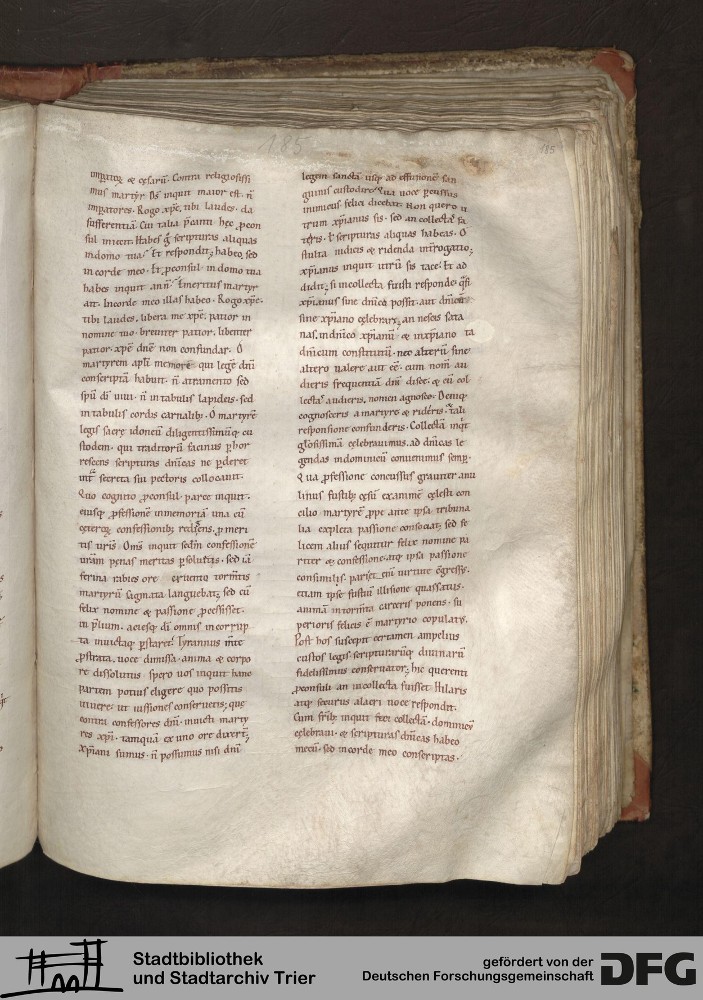 185
185
impatorũ & cęsarũ. Contra religiosissi
mus martyr. D̄s inquit maior est. n̄
impatores. Rogo xp̄e. tibi laudes. da
sufferentiã. Cui talia p̄canti hęc ꝓcon
sul iniecit. Habes g̃ scripturas aliquas
in domo tua? Et respondit; habeo. sed
in corde meo. Et ꝓconsul in domo tua
habes inquit an n̄? Emeritus martyr
ait. In corde meo illas habeo. Rogo xp̄e.
tibi laudes. libera me xp̄e. patior in
nomine tuo. breuiter patior. libenter
patior. xp̄e dn̄e non confundar. O
martyrem apl̄i memorẽ qui legẽ dn̄i
conscriptã habuit. n̄ atramento sed
sp̄u dī uiui. n̄ in tabulis lapideis. sed
in tabulis cordis carnalib;. O martyrẽ
legis sacrę idoneũ diligentissimũq; cu
stodem. qui traditorũ facinus ꝑhor
rescens scripturas dn̄icas ne ꝑderet
int̃ secreta sui pectoris collocauit.
Quo cognito ꝓconsul parce inquit.
eiusq; ꝓfessionẽ in memoriã una cũ
cęteroꝝ confessionib; redigens. ꝓ meri
tis uris̄. Om̄s inquit scd̄m confessionẽ
ur̄am pęnas meritas ꝑsoluetis. sed iã
ferina rabies ore cruento tormtis
martyrũ saginata languebat; sed cũ
felix nomine & passione ꝓcessisset.
in p̄lium. aciesq; dī omnis incorrup
ta inuictaq; ꝑstaret. Tyrannus m̃te
ꝓstrata. uoce dimissa. anima & corpo
re dissolutus spero uos inquit hanc
partem potius eligere quo possitis
uiuere. ut iussiones conseruetis; quę
contra confessores dn̄i. inuicti marty
res xp̄i. tamquã ex uno ore dixert;
Xp̄iani sumus. n̄ possumus nisi dn̄i
legem sanctã. usq; ad effusionẽ san
guinis custodire. Qua uoce ꝑcussus
inimicus felici dicebat. Non quero u
trum xp̄ianus sis. sed an collectã fe
ceris. ł scripturas aliquas habeas. O
stulta iudicis & ridenda int̃rogatio;
xp̄ianus inquit utrũ sis tace. Et ad
didit; si in collecta fuisti responde. q̃si
xp̄ianus sine dn̄ico possit. aut dn̄icũ
sine xp̄iano cęlebrari; an nescis sata
nas. in dn̄ico xp̄ianũ & in xp̄iano
dn̄icum constitutũ. nec alterũ sine
altero ualere aut eē. cum nom̃ au
dieris frequentiã dn̄i disce. & cũ col
lectã audieris. nomen agnosce. Deniq;
cognosceris a martyre & rideris. tali
responsione confunderis. Collectã inq̃t
glosissimã cęlebrauimus. ad dn̄icas le
gendas in dominicũ conuenimus semp̃.
Qua ꝓfessione concussus grauiter anu
linus fustib; cęsũ exanimẽ cęlesti con
cilio martyrẽ ꝓpe ante ipsa tribuna
lia expleta passione consociat; sed fe
licem alius sequitur felix nomine pa
riter & confessione. atq; ipsa passione
consimilis. pari et enī uirtute c̃gressus.
etiam ipse fustiũ illisione quassatus.
animã in tormta carceris ponens. su
perioris felicis ē martyrio copulatus.
Post hos suscepit certamen ampelius
custos legis. scripturarũq; diuinarũ
fidelissimus conseruator; hic querenti
ꝓconsuli. an in collecta fuisset. Hilaris
atq; securus alacri uoce respondit.
Cum frib; inquit feci collectã. dominicũ
cęlebraui. & scripturas dn̄icas habeo
mecũ. sed in corde meo conscriptas.
Stadtbibliothek
und Stadtarchiv Trier
gefördert von der
Deutschen Forschungsgemeinschaft
DFG